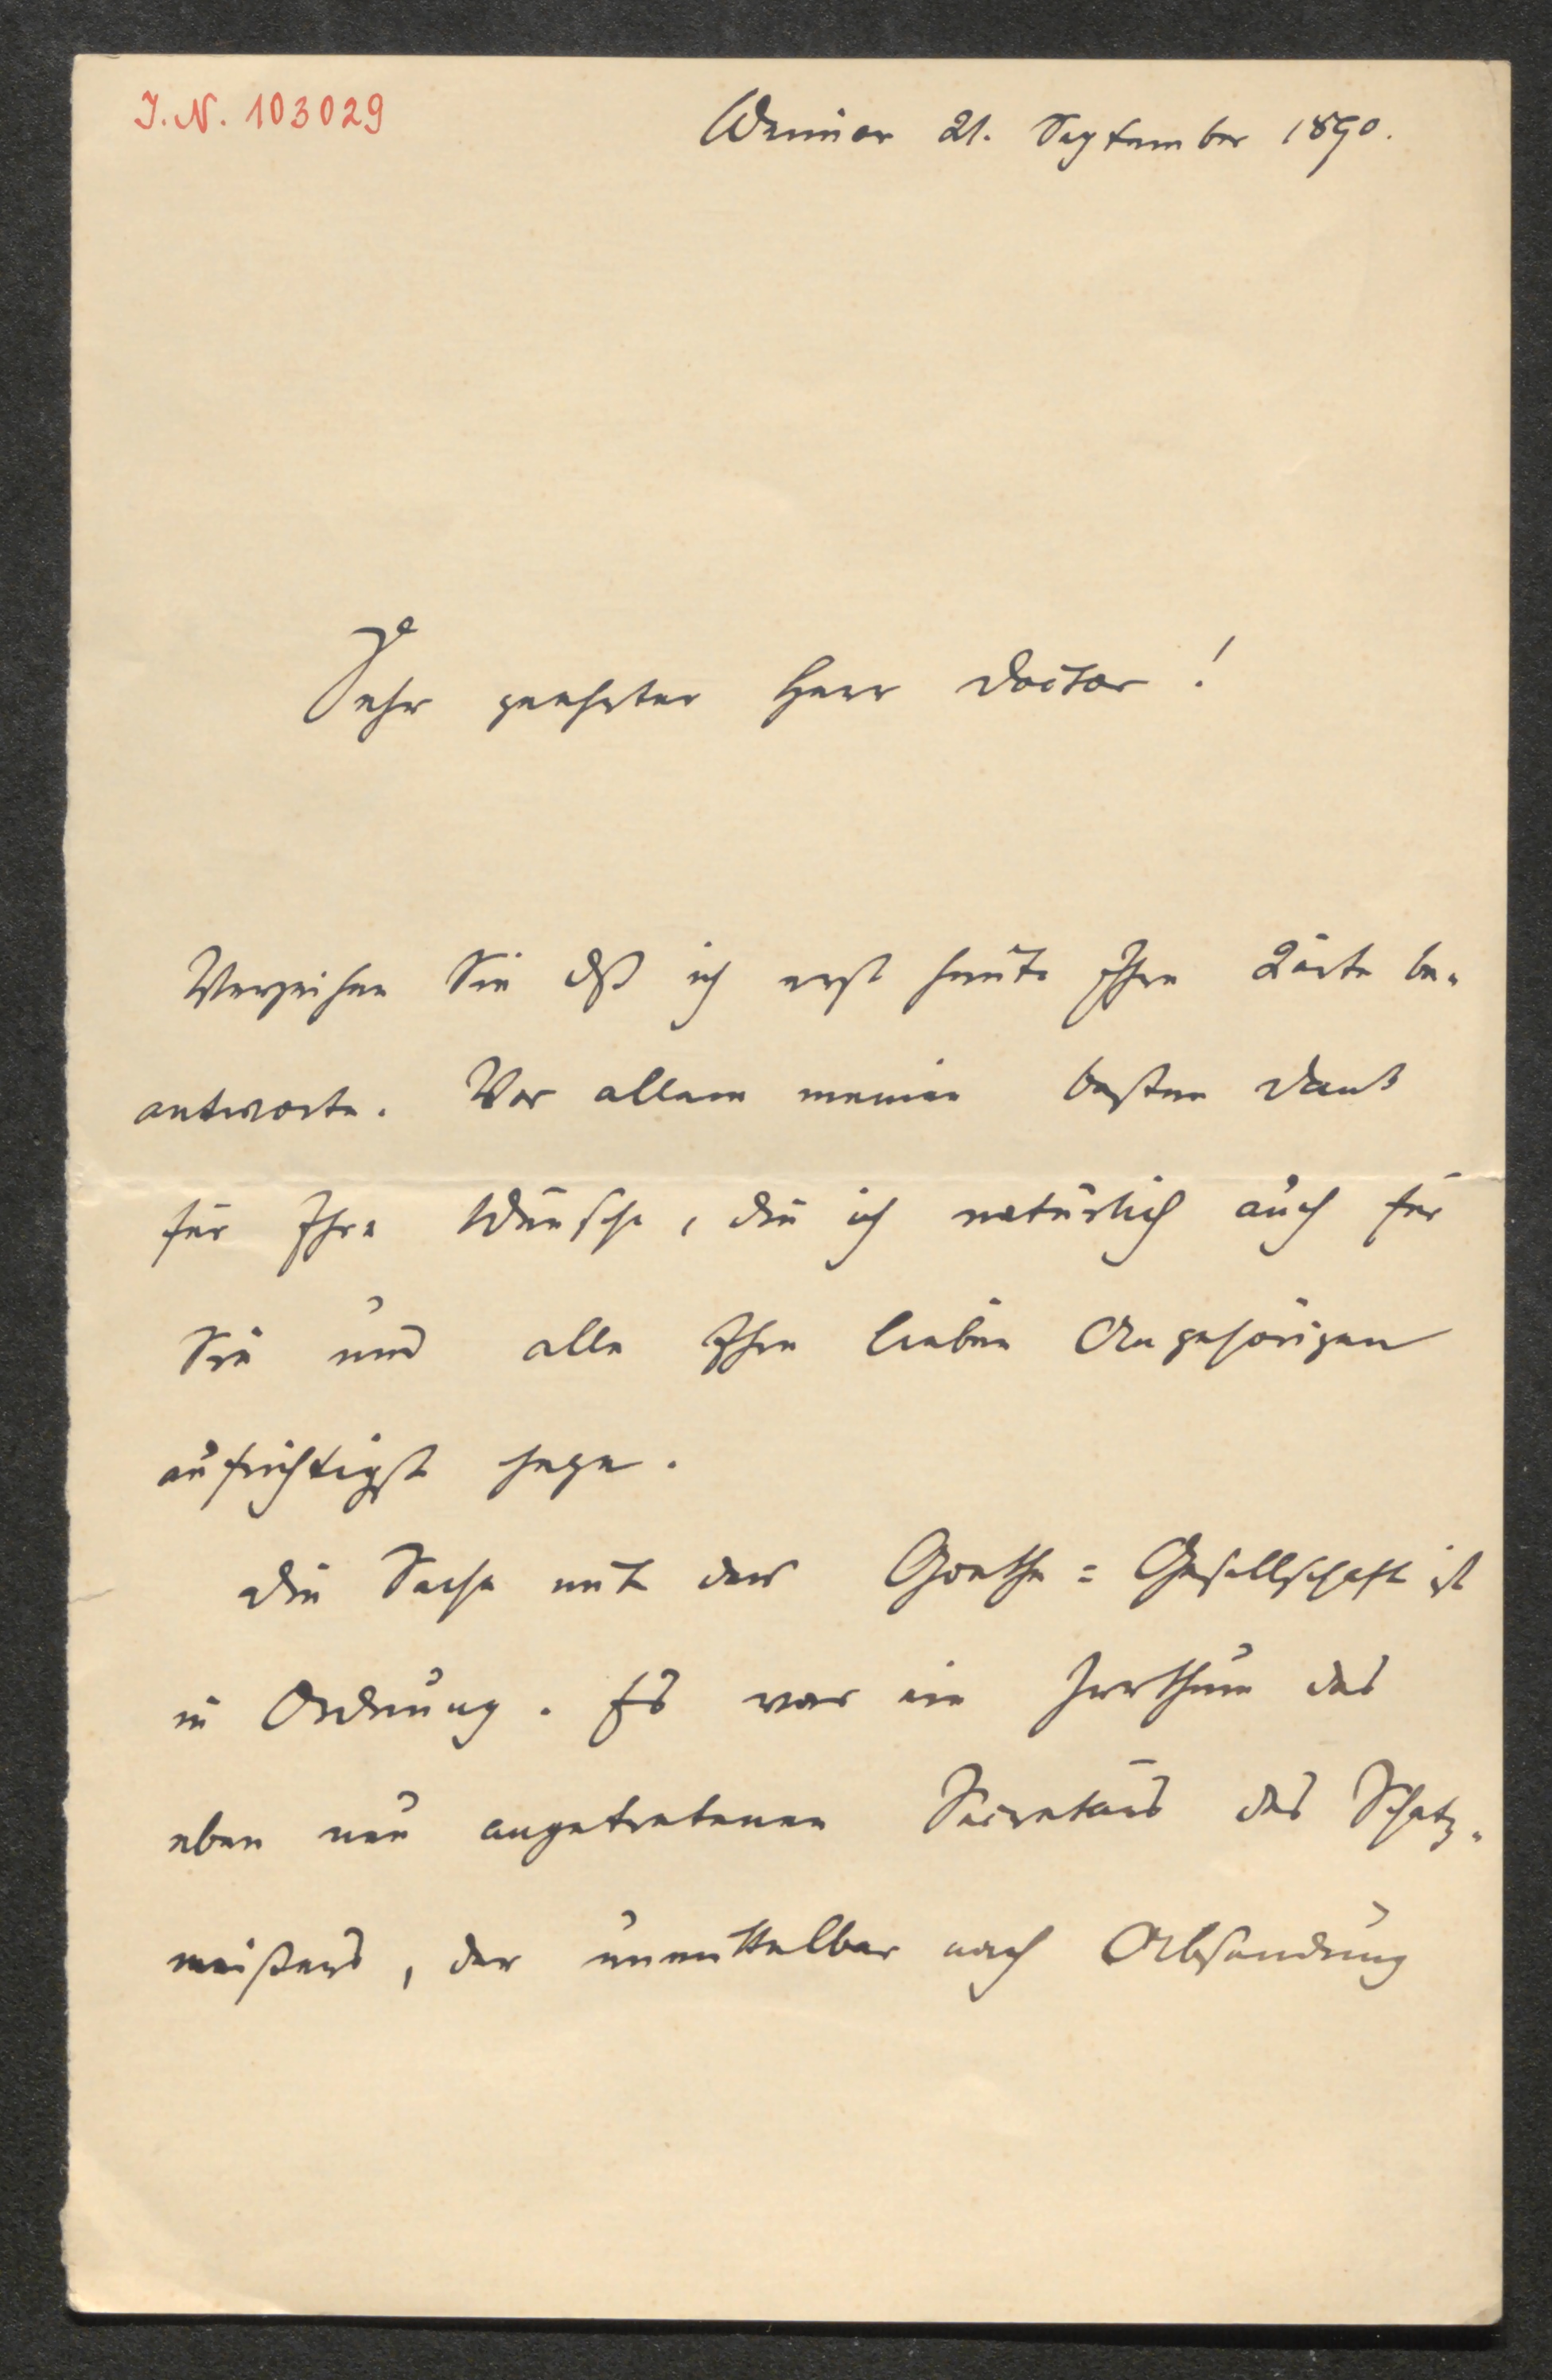 J.N. 103029
Weimar 21. September 1890.
Sehr geehrter Herr Doctor!
Verzeihen Sie dß ich erst heute Ihre Karte be-
antworte. Vor allem meinen besten Dank
für Ihre Wünsche, die ich natürlich auch für
Sie und alle Ihre lieben Angehörigen
aufrichtigst hege.
Die Sache mit der Goethe-Gesellschaft ist
in Ordnung. Es war ein Irrthum des
eben neu angetretenen Secretärs des Schatz-
meisters, der unmittelbar nach Absendung